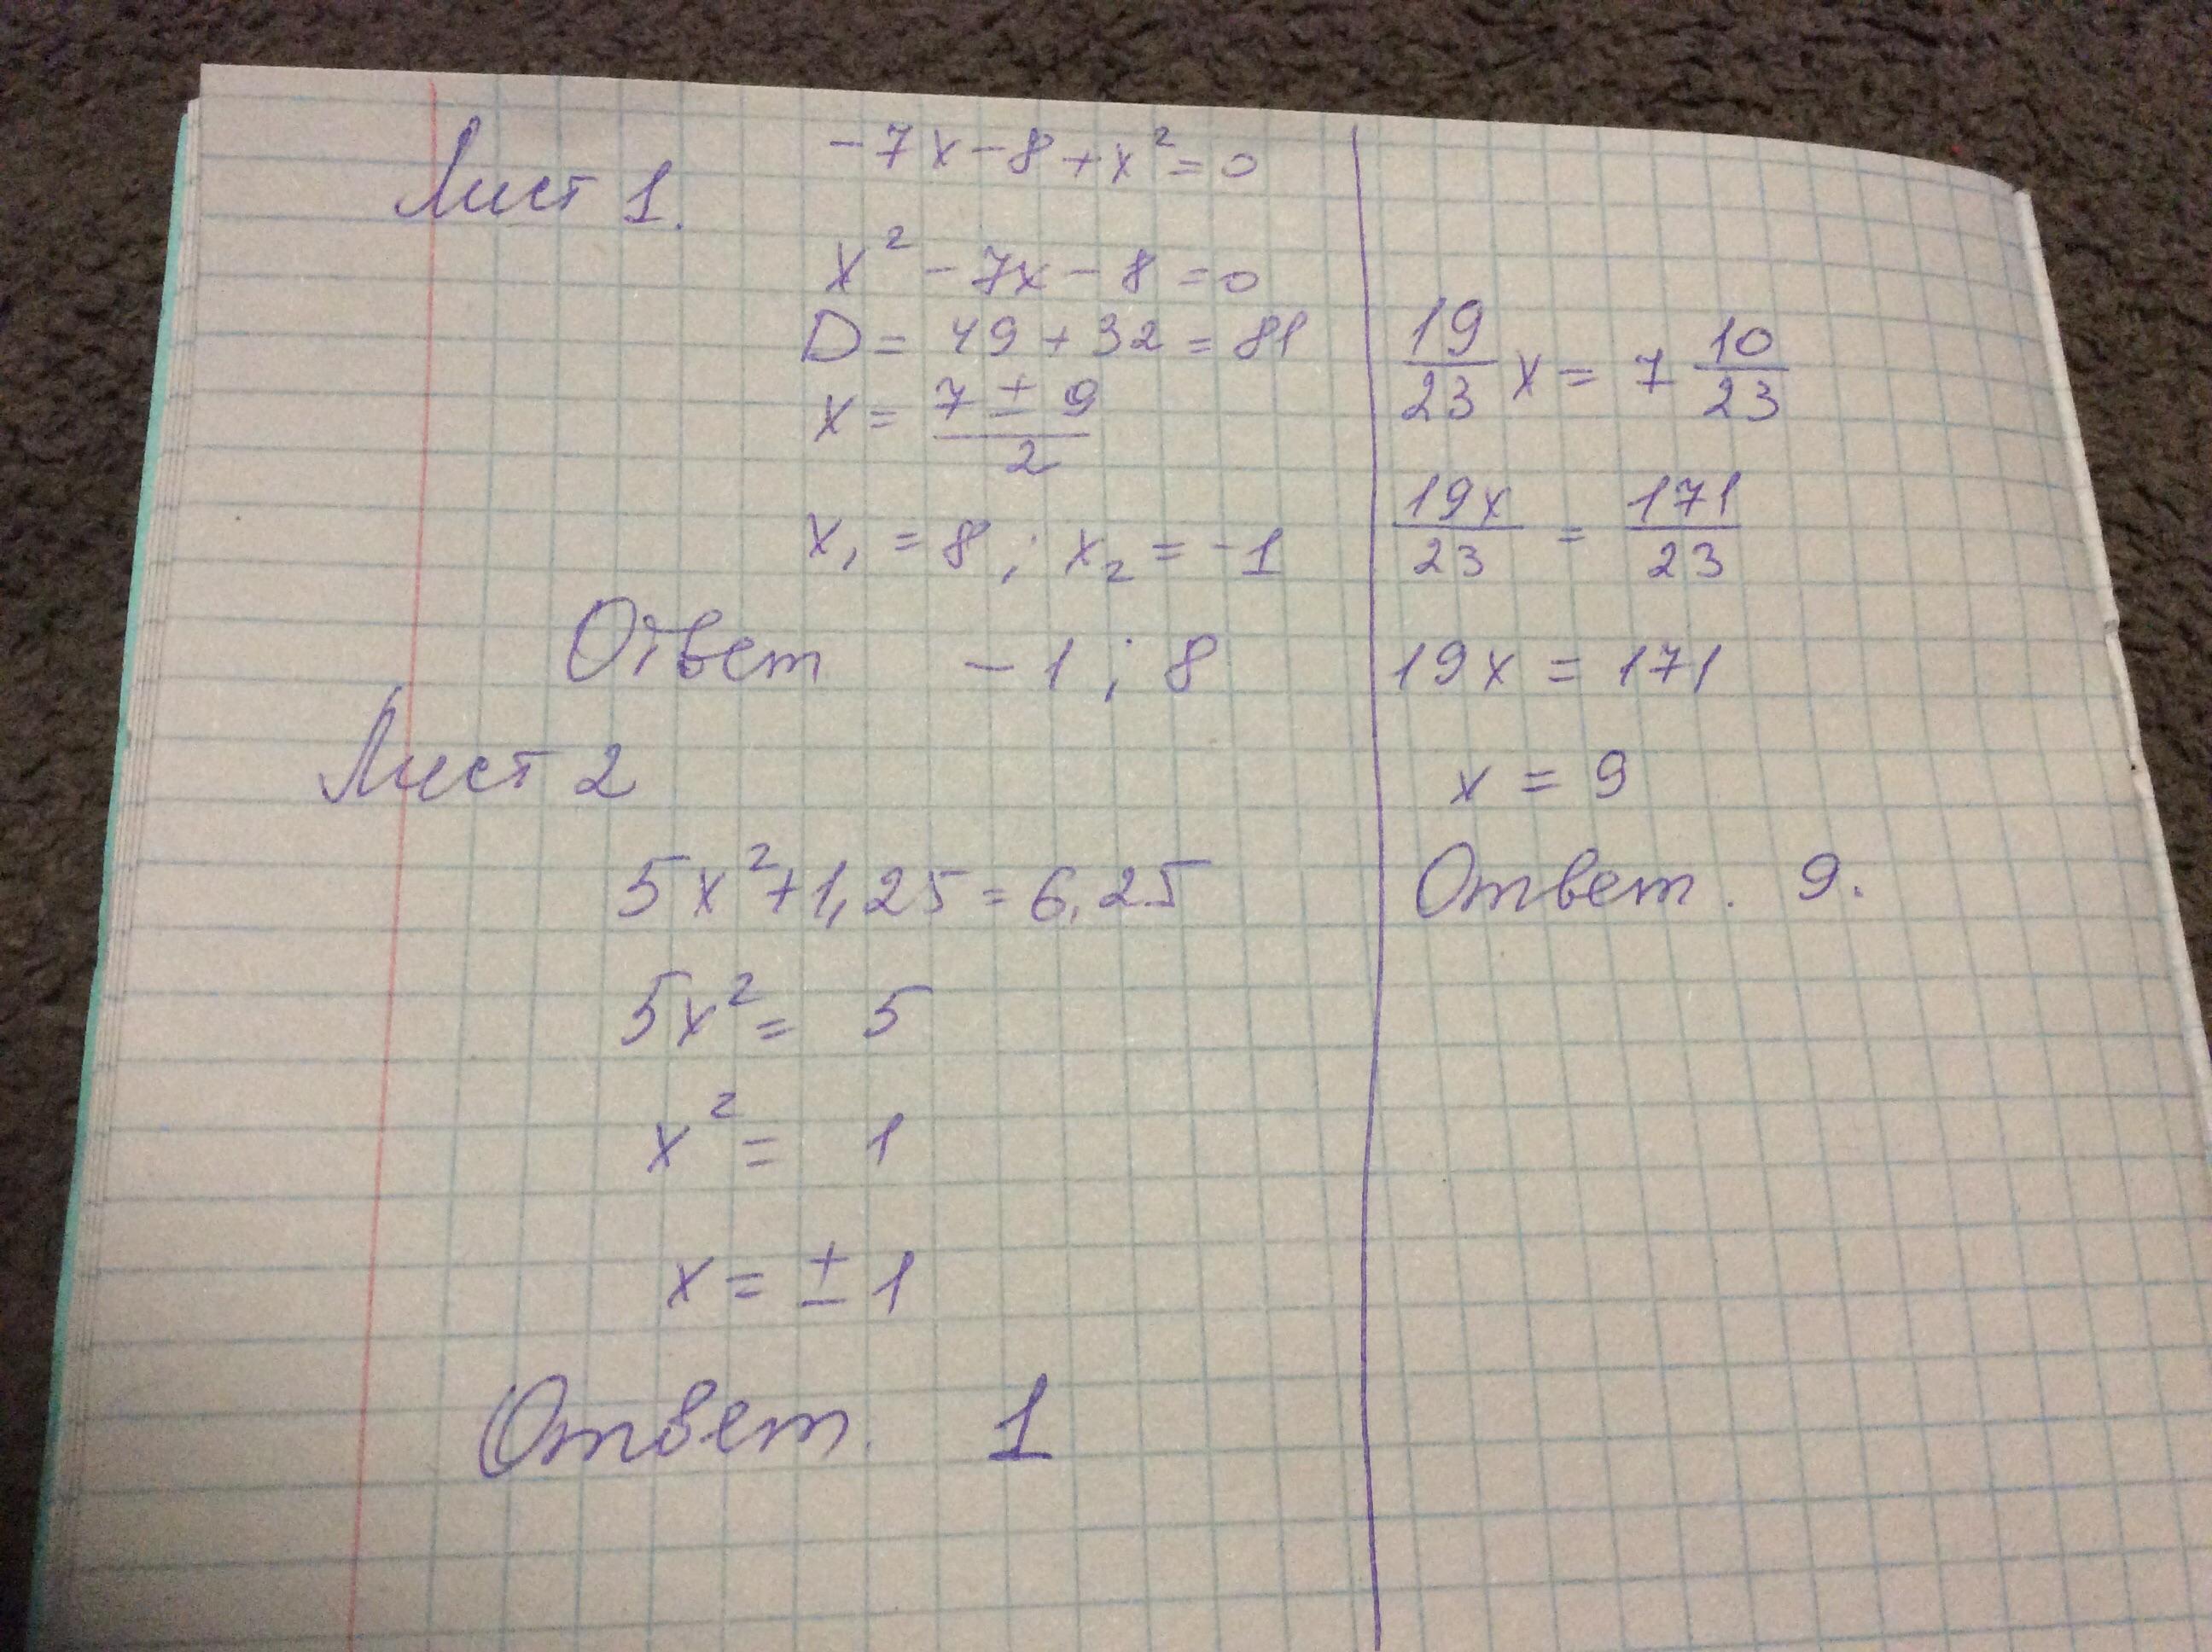 Лист 1.
-7x-8+x²=0
x²-7x-8=0
D=49+32=81
x=(7±9)/2
x₁=8; x₂=-1
Ответ -1; 8
Лист 2
5x²+1,25=6,25
5x²=5
x²=1
x=±1
Ответ. 1
19/23 x=7 10/23
19x/23=171/23
19x=171
x=9
Ответ. 9.